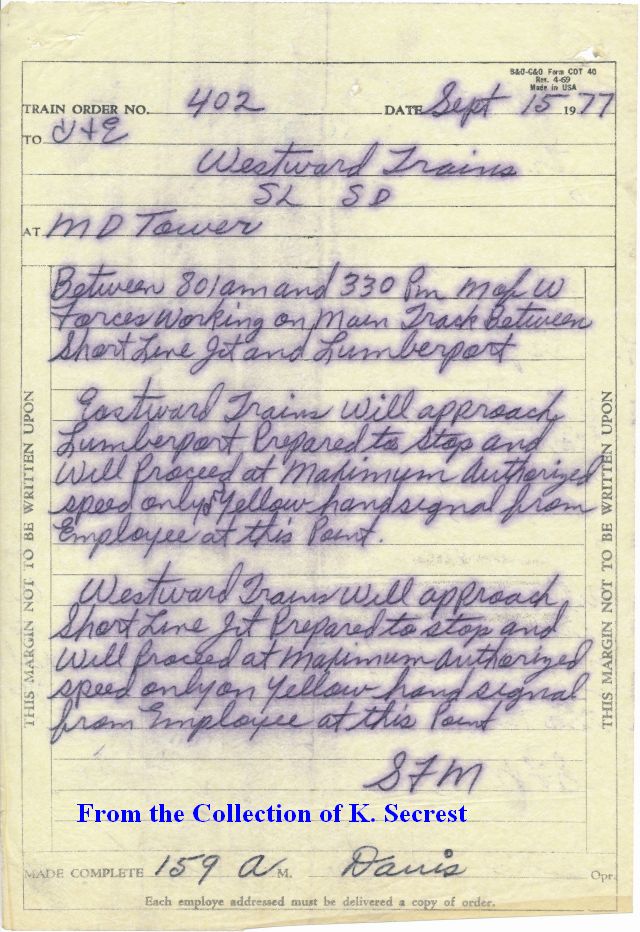 B&O-C&O Form COT 40
Rev. 4-69
Made in USA
TRAIN ORDER NO. 402 DATE Sept 15 1977
TO C+E
Westward Trains
SL SD
AT MD Tower
Between 801am and 330 Pm M of W
Forces Working on Main Track Between
Short Line Jct and Lumberport
Eastward Trains Will approach
Lumberport Prepared to stop and
Will Proceed at Maximum Authorized
speed only on Yellow hand signal from
Employee at this Point.
Westward Trains Will approach
Short Line Jct Prepared to stop and
Will Proceed at Maximum Authorized
speed only on Yellow hand signal
from Employee at this Point
SFM
THIS MARGIN NOT TO BE WRITTEN UPON
THIS MARGIN NOT TO BE WRITTEN UPON
From the Collection of K. Secrest
MADE COMPLETE 159 A M. Davis Opr.
Each employe addressed must be delivered a copy of order.